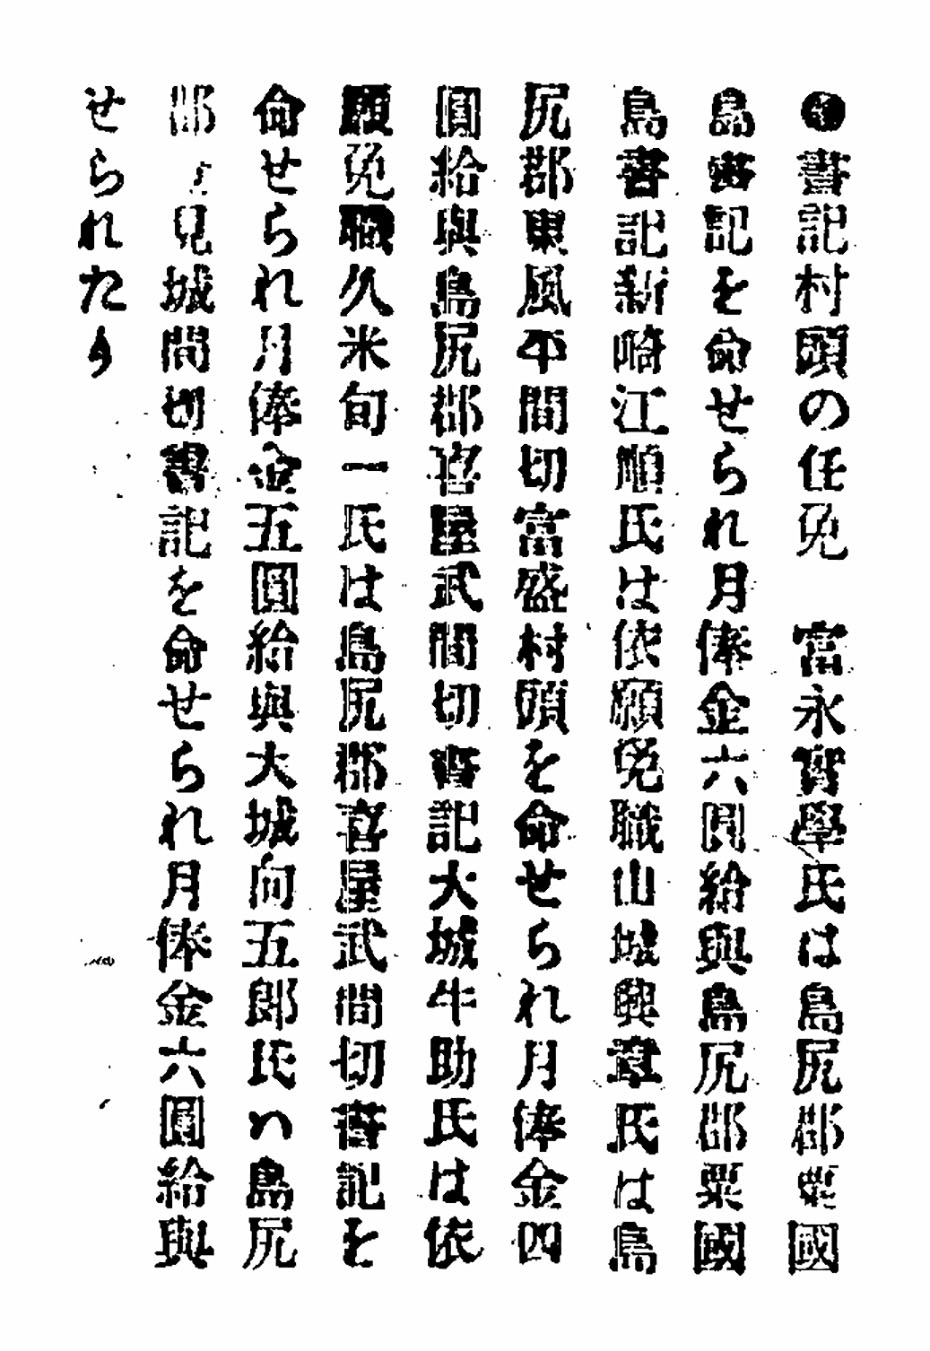 ●書記村頭の任免　富永實學氏は島尻郡粟國
島書記を命せられ月俸金六圓給與島尻郡粟國
島書記新崎江順氏は依願免職山城興章氏は島
尻郡東風平間切富盛村頭を命せられ月俸金四
圓給與島尻郡喜屋武間切書記大城牛助氏は依
願免職久米旬一氏は島尻郡喜屋武間切書記を
命せられ月俸金五圓給與大城向五郎氏ハ島尻
郡 見城間切書記を命せられ月俸金六圓給與
せられたり